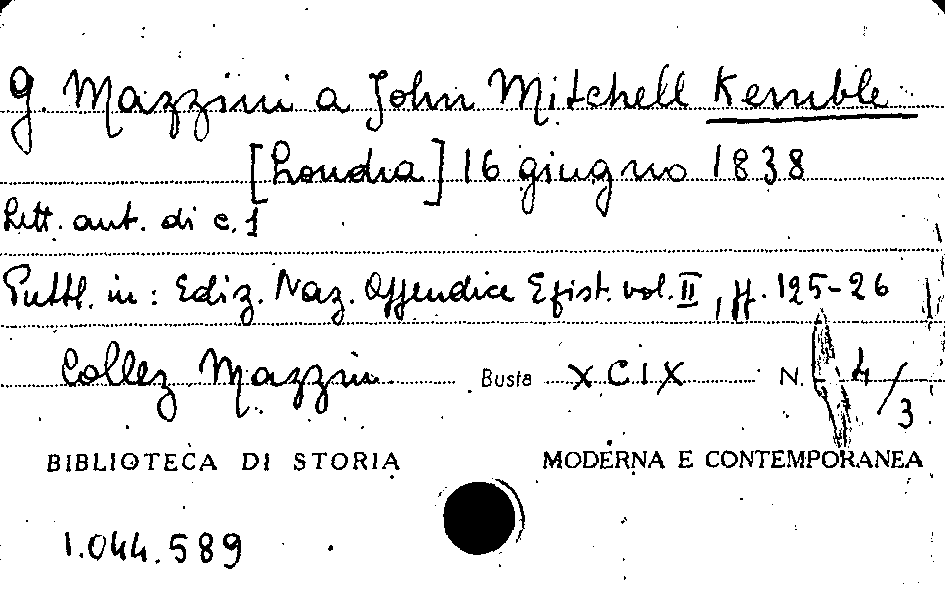 G. Mazzini a John Mitchell Kemble
[Londra] 16 giugno 1838
Lett. aut. di c. 1
Pubbl. in: Ediz. Naz. Appendice Epist. vol. II, pp. 125-26
Collez Mazzini Busta XCIX N. 4/3
BIBLIOTECA DI STORIA MODERNA E CONTEMPORANEA
1.044.589